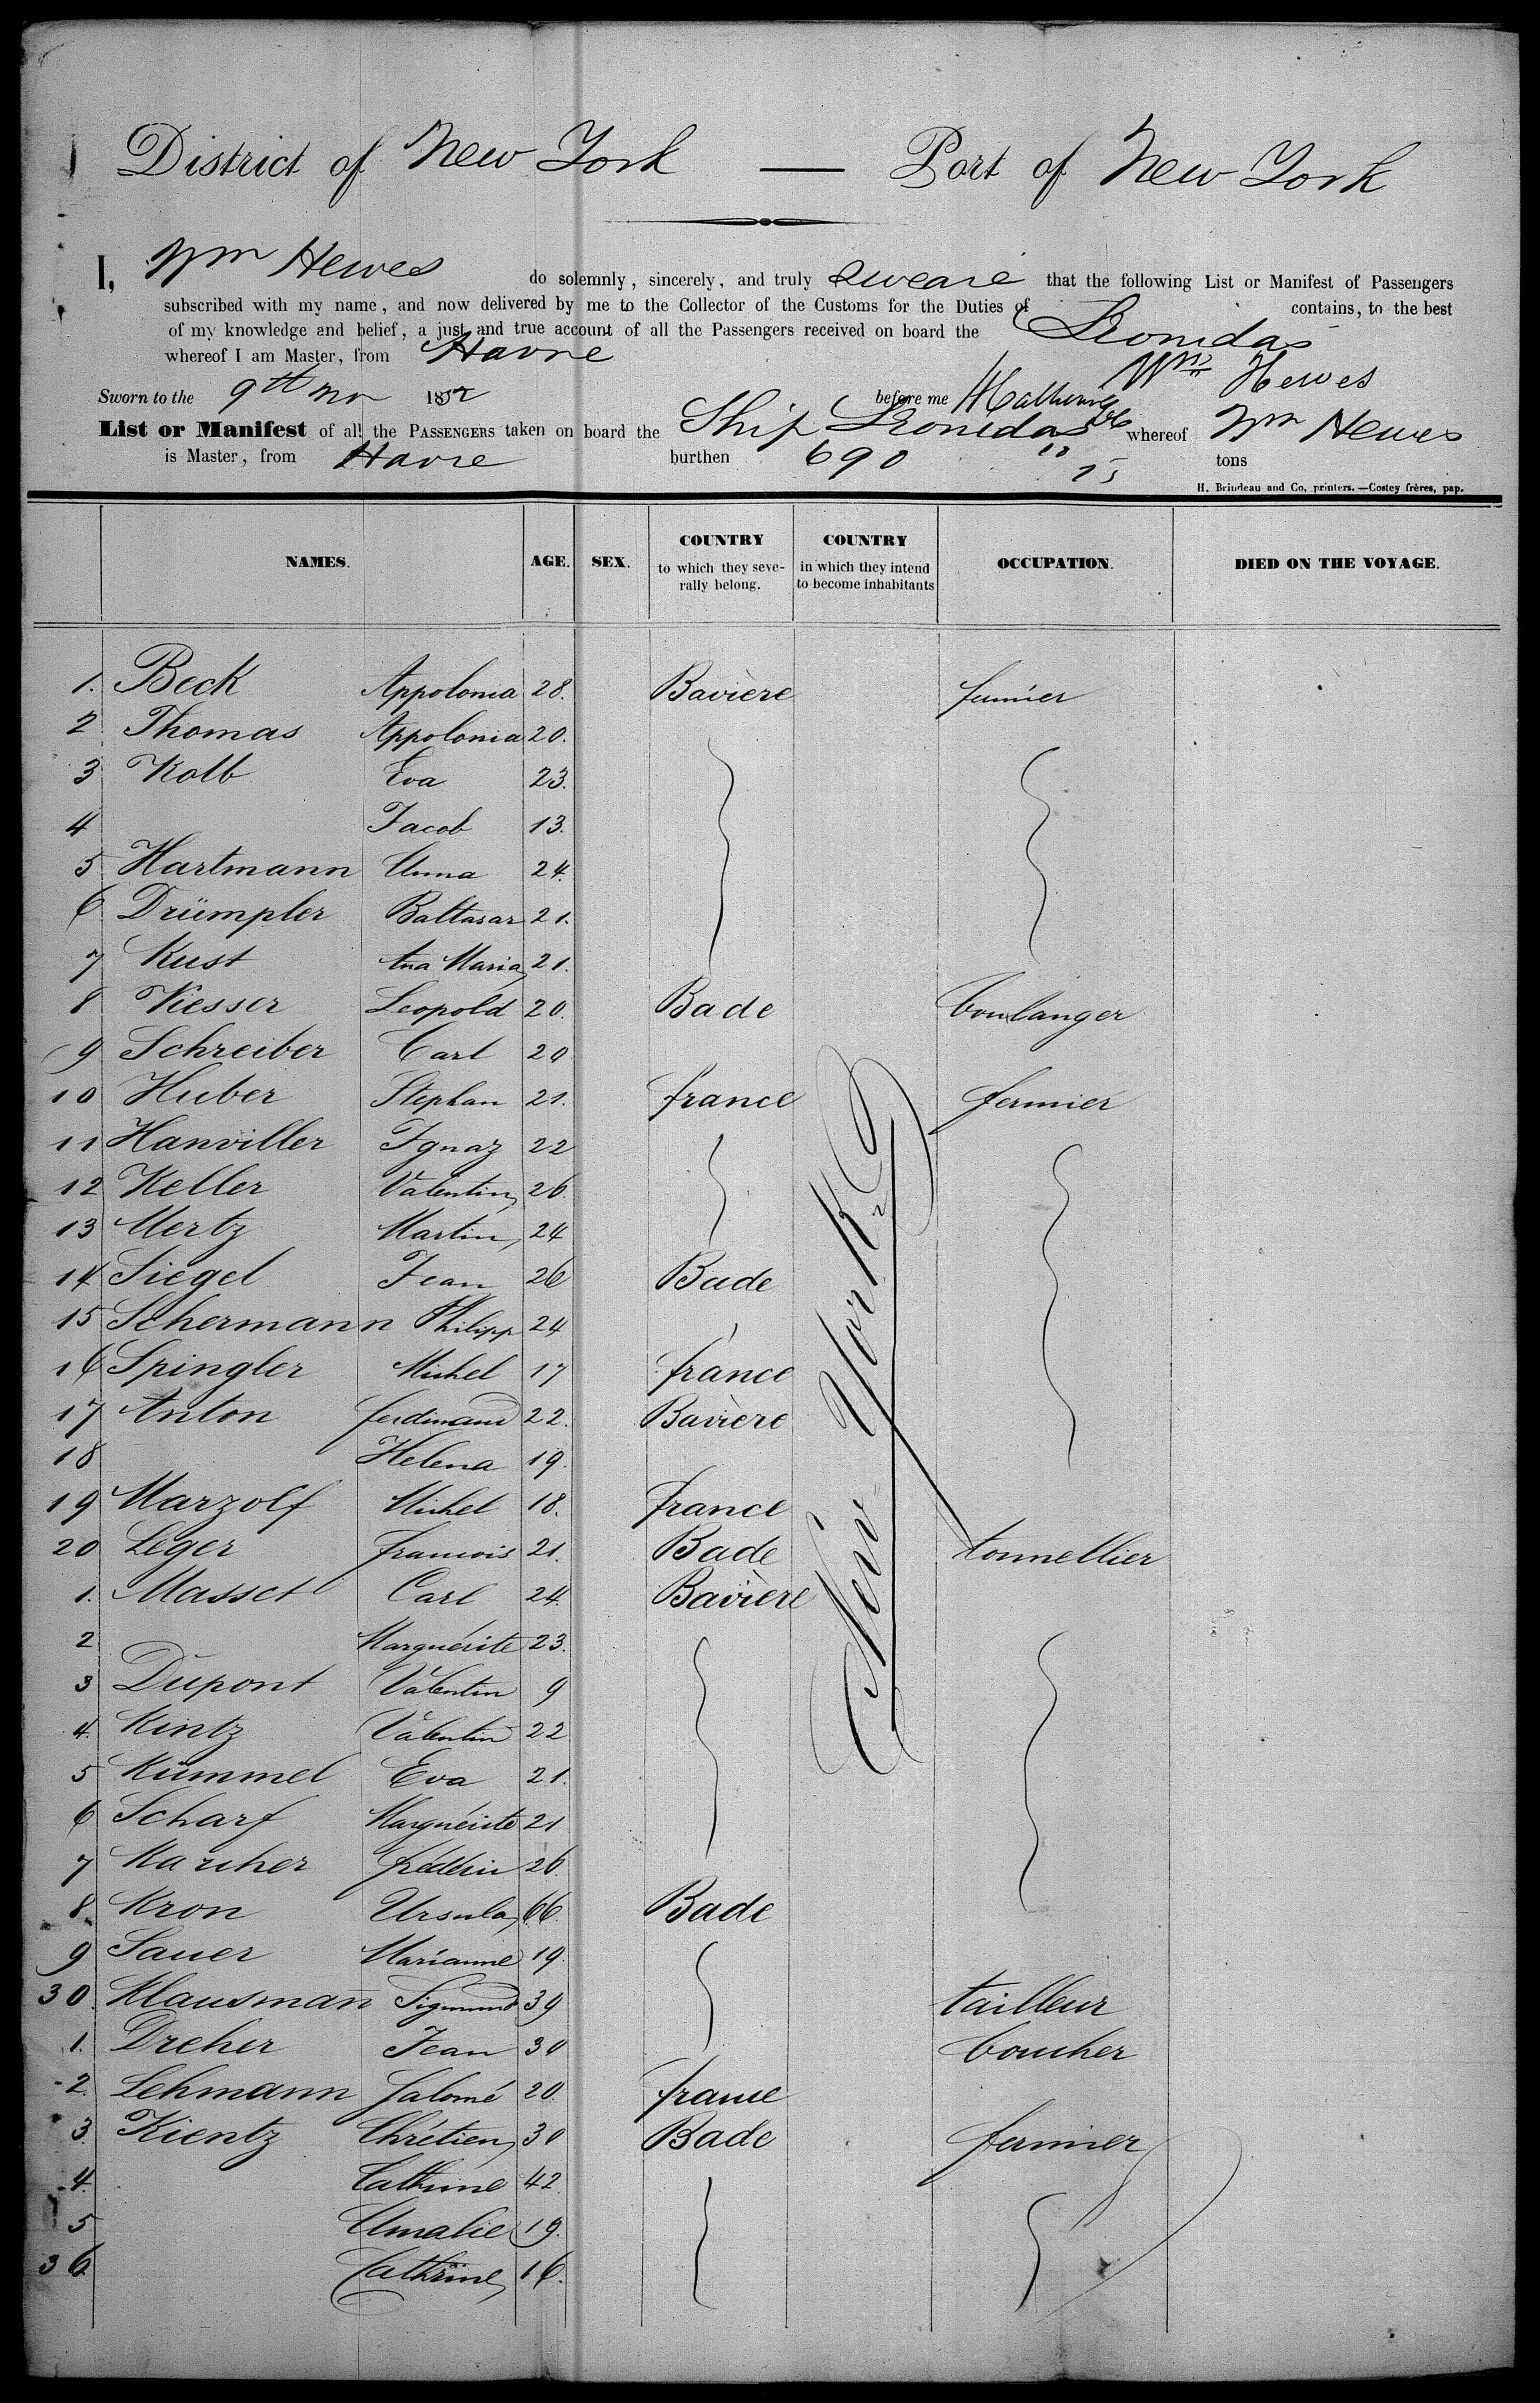 District of New York — Port of New York
I, Wm Hewes do solemnly, sincerely, and truly sweare that the following List or Manifest of Passengers
subscribed with my name, and now delivered by me to the Collector of the Customs for the Duties of contains, to the best
of my knowledge and belief, a just and true account of all the Passengers received on board the Leonidas
whereof I am Master, from Havre
Wm Hewes
Sworn to the 9th 1852 before me
List or Manifest of all the PASSENGERS taken on board the Ship Leonidas whereof Wm Hewes
is Master, from Havre burthen 690 tons
H. Brindeau and Co, printers. —Costey frères, pap.
NAMES. AGE. SEX. COUNTRY to which they severally belong. COUNTRY in which they intend to become inhabitants OCCUPATION. DIED ON THE VOYAGE.
1. Beck Appolonia 28. Bavière fermier
2 Thomas Appolonia 20.
3 Kolb Eva 23.
4 Jacob 13.
5 Hartmann Anna 24.
6 Drümpler Baltasar 21.
7 Kust Ana Maria 21.
8 Kiesser Leopold 20. Bade boulanger
9 Schreiber Carl 20
10 Huber Stephan 21. france fermier
11 Hanviller Ignaz 22
12 Keller Valentin 26.
13 Mertz Martin 24
14 Siegel Jean 26 Bade
15 Schermann Philipp 24
16 Spingler Michel 17 france
17 Anton ferdinand 22. Bavière
18 Helena 19.
19 Marzolf Michel 18. france
20 Leger francois 21. Bade tonnellier
1. Masset Carl 24. Bavière
2 Marguérite 23.
3 Dupont Valentin 9
4. Kintz Valentin 22
5 Kümmel Eva 21.
6 Scharf Marguérite 21
7 Karcher frédéric 26.
8. Kron Ursula 66. Bade
9 Sauer Marianne 19.
30. Klausman Sigmund 39 tailleur
1. Dreher Jean 30 boucher
2. Lehmann Salomé 20. france
3. Kientz Chrétien 30 Bade fermier
4. Cathrine 42.
5 Amalie 19.
36. Cathrine 16.
New York